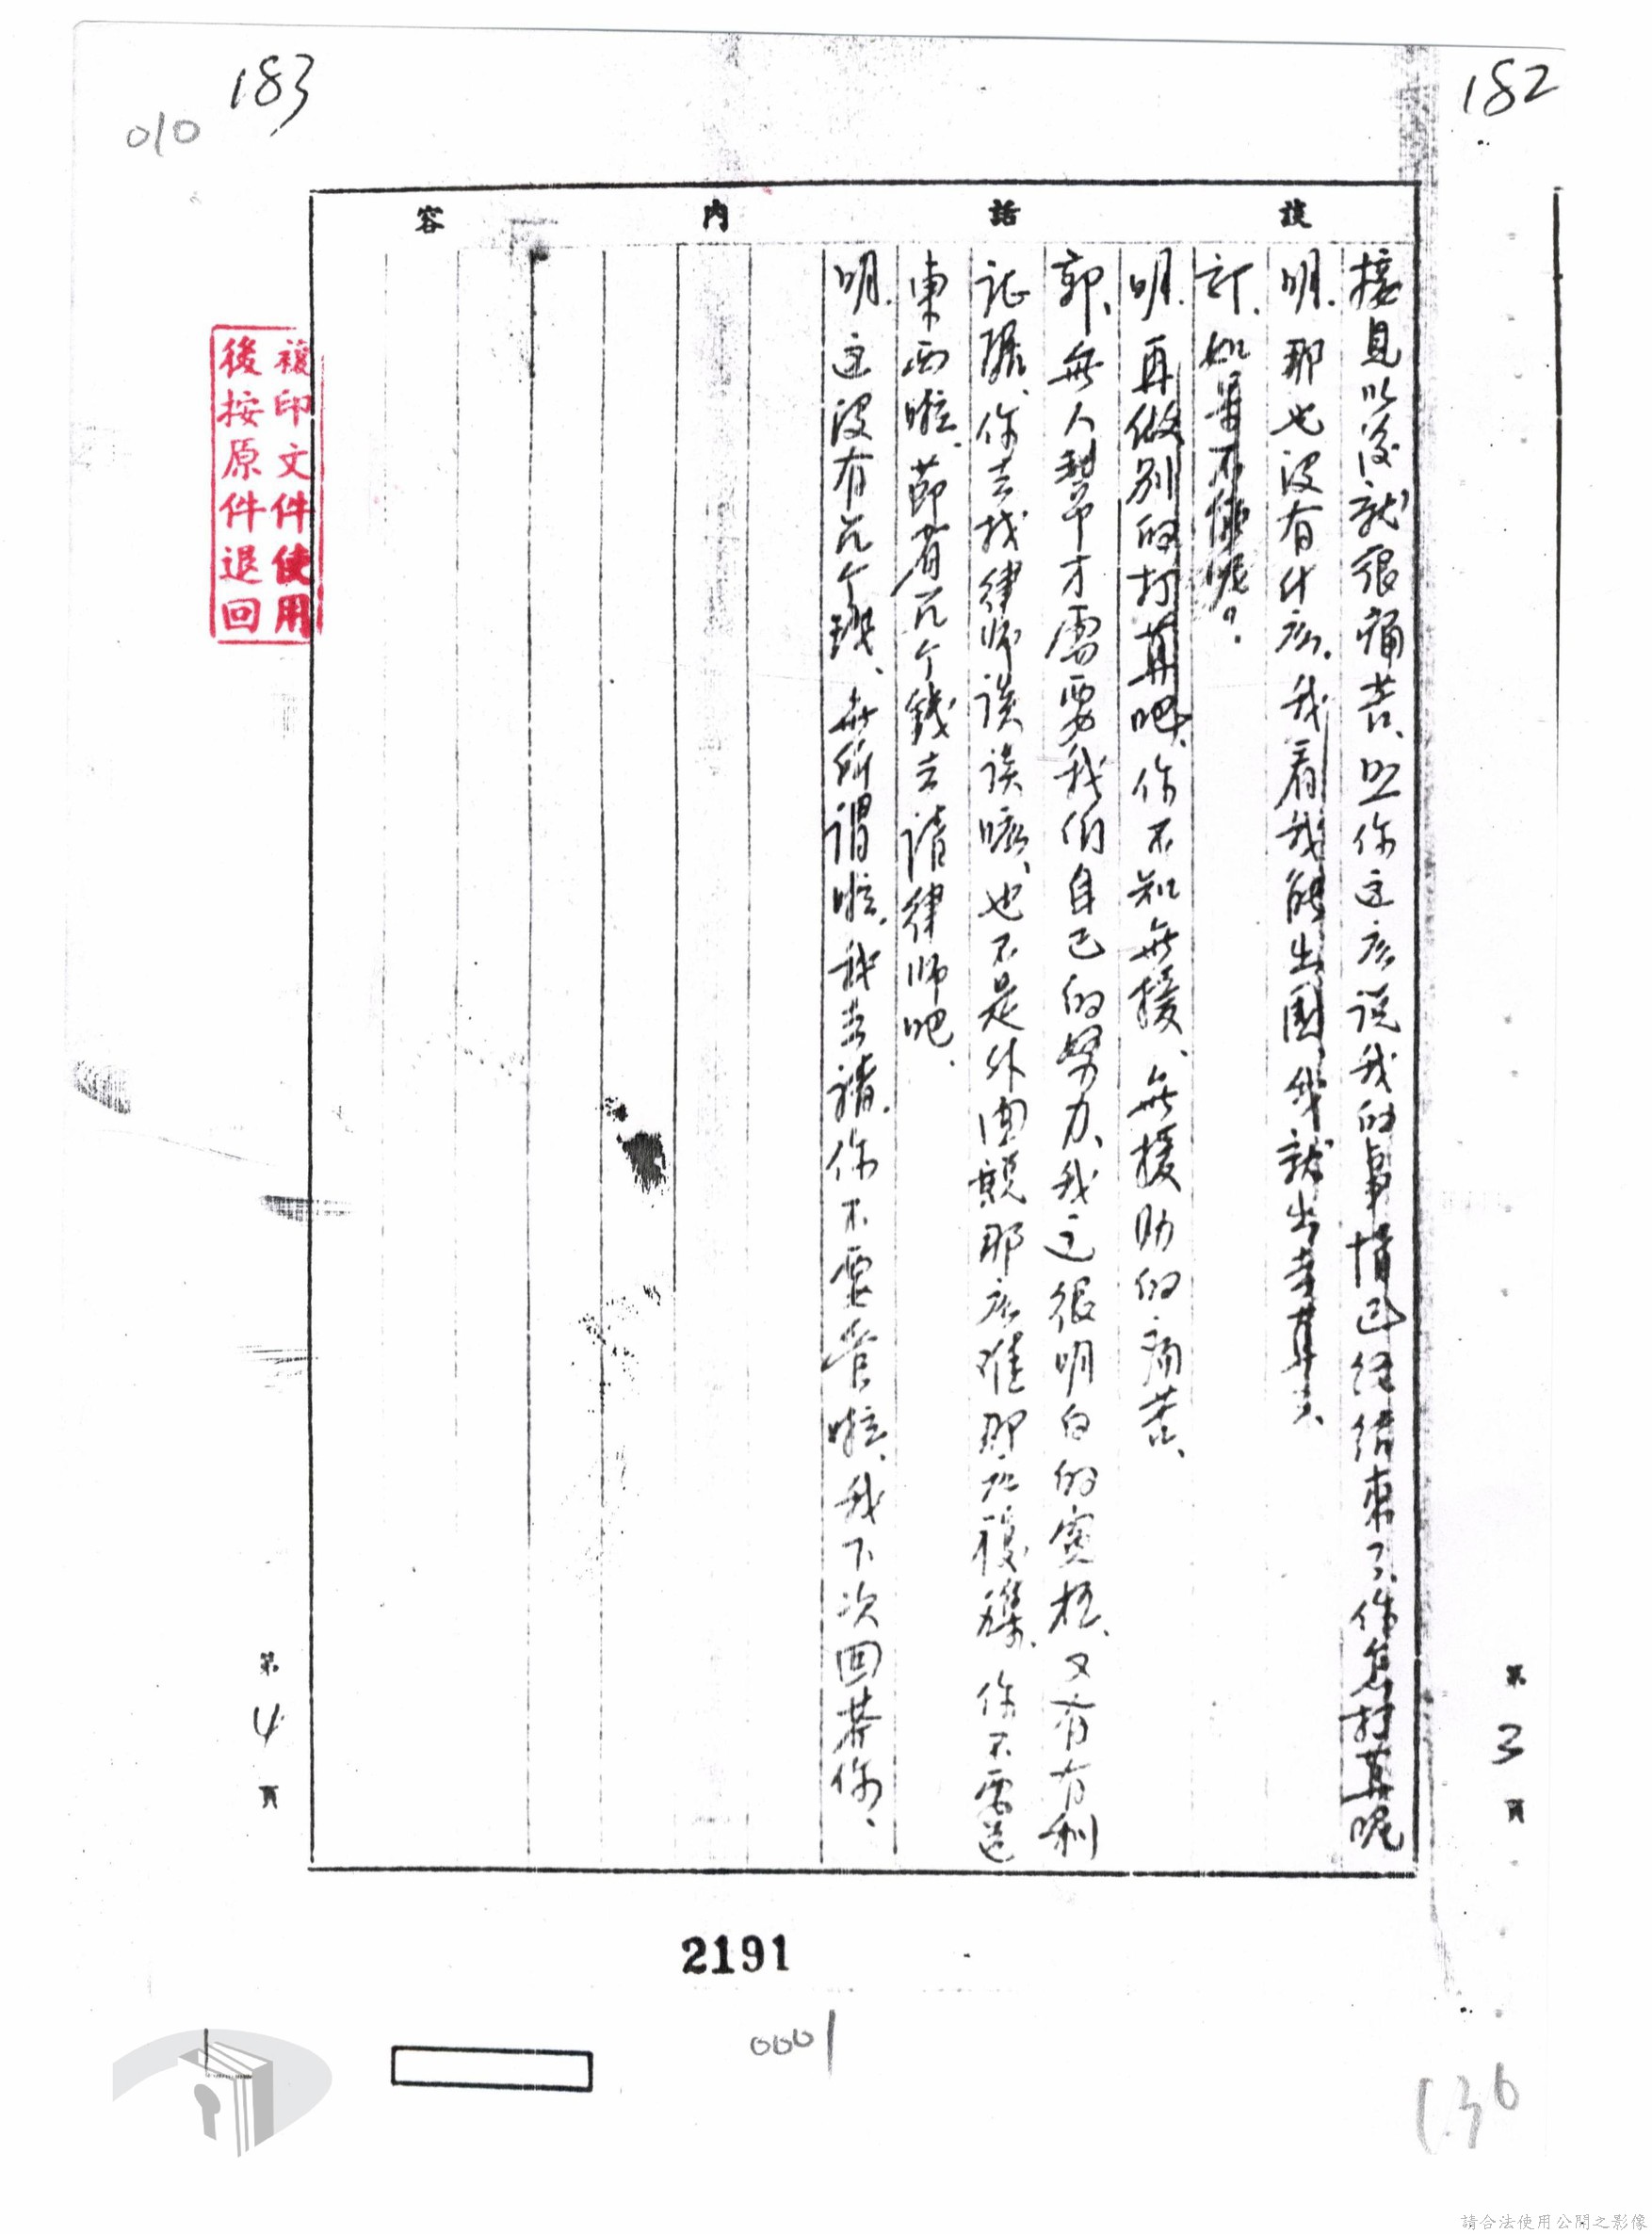 182
183
010
談話內容
接見以後就很痛苦、照你这么说我的事情已经结束了、你怎打算呢
明.那也沒有什么.我看我能出國我就出去算了、
訂.如果不能呢?.
明.再做別的打算吧、你不知無援、無援助的痛苦、
郭、無人幫助才需要我们自己的努力、我这很明白的冤枉、又有有利
証據、你去找律师谈谈嘛、也不是外面說那么难那么複雜、你不需送
東西啦、節省几个錢去請律师吧、
明.这沒有几个錢、無所謂啦、我去請.你不要管啦、我下次回答你、
第3頁
第4頁
複印文件使用
後按原件退回
2191
0001
136
請合法使用公開之影像